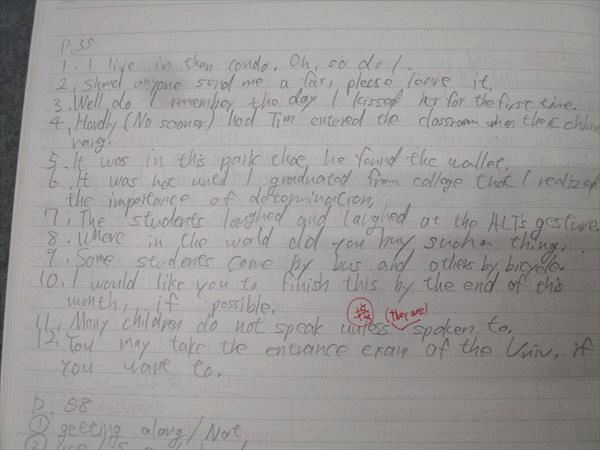 P.35
1. I live in that condo. Oh, so do I.
2. Should anyone send me a fax, please leave it.
3. Well do I remember the day I kissed her for the first time.
4. Hardly (No sooner) had Tim entered the classroom when the chime
rang.
5. It was in this park that he found the wallet.
6. It was not until I graduated from college that I realized
the importance of determination.
7. The students laughed and laughed at the ALT's gesture.
8. Where in the world did you buy such a thing.
9. Some students come by bus and others by bicycle.
10. I would like you to finish this by the end of this
month, if possible.
(they are)
11. Many children do not speak unless spoken to.
12. You may take the entrance exam of the Univ, if
you want to.
P. 58
① getting along / Not
②